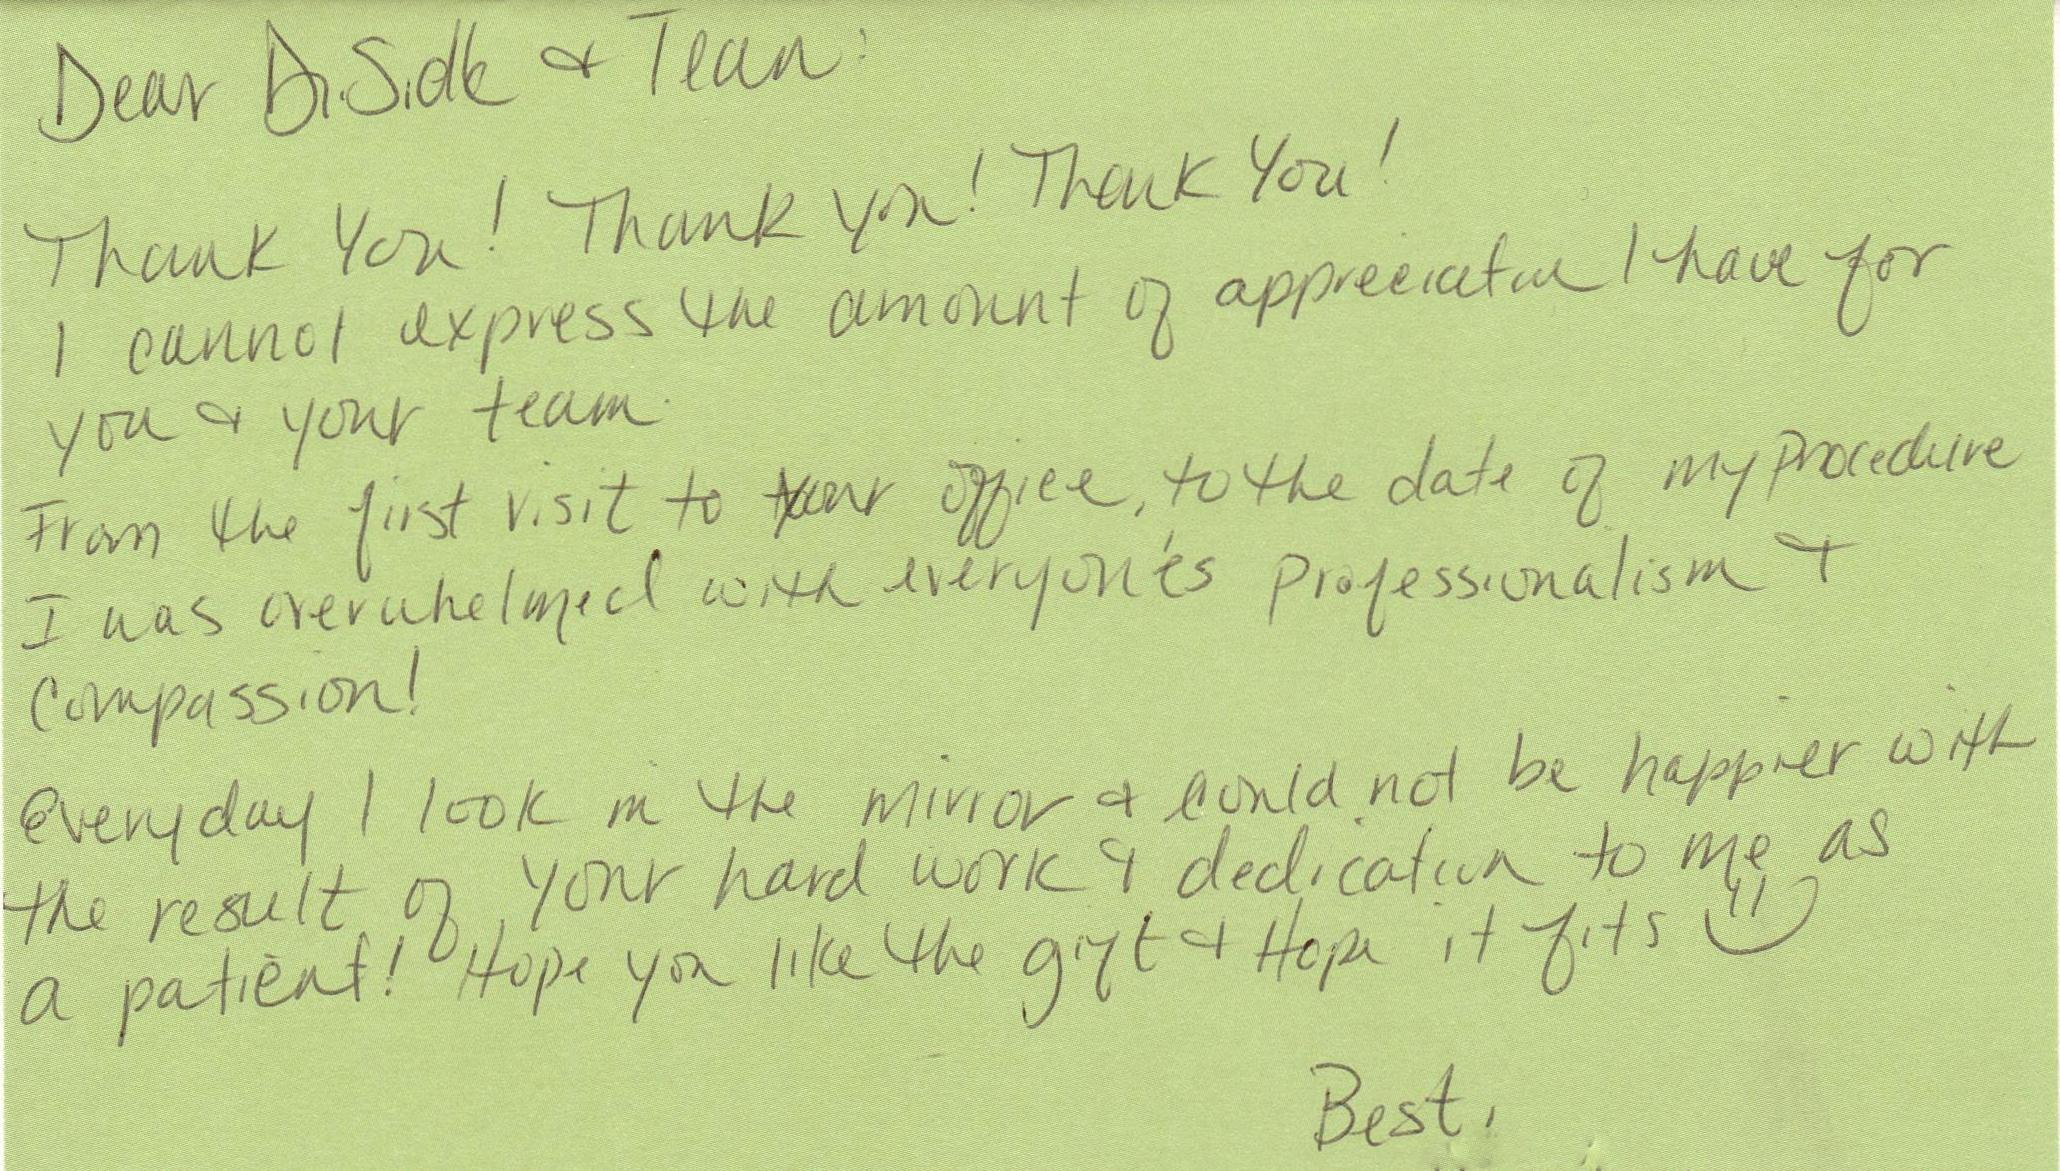 Dear Dr. Sidle & Team:
Thank You! Thank you! Thank You!
I cannot express the amount of appreciation I have for
you & your team.
From the first visit to your office, to the date of my procedure
I was overwhelmed with everyone's professionalism &
compassion!
Everyday I look in the mirror & could not be happier with
the result of your hard work & dedication to me as
a patient! Hope you like the gift & Hope it fits
Best,